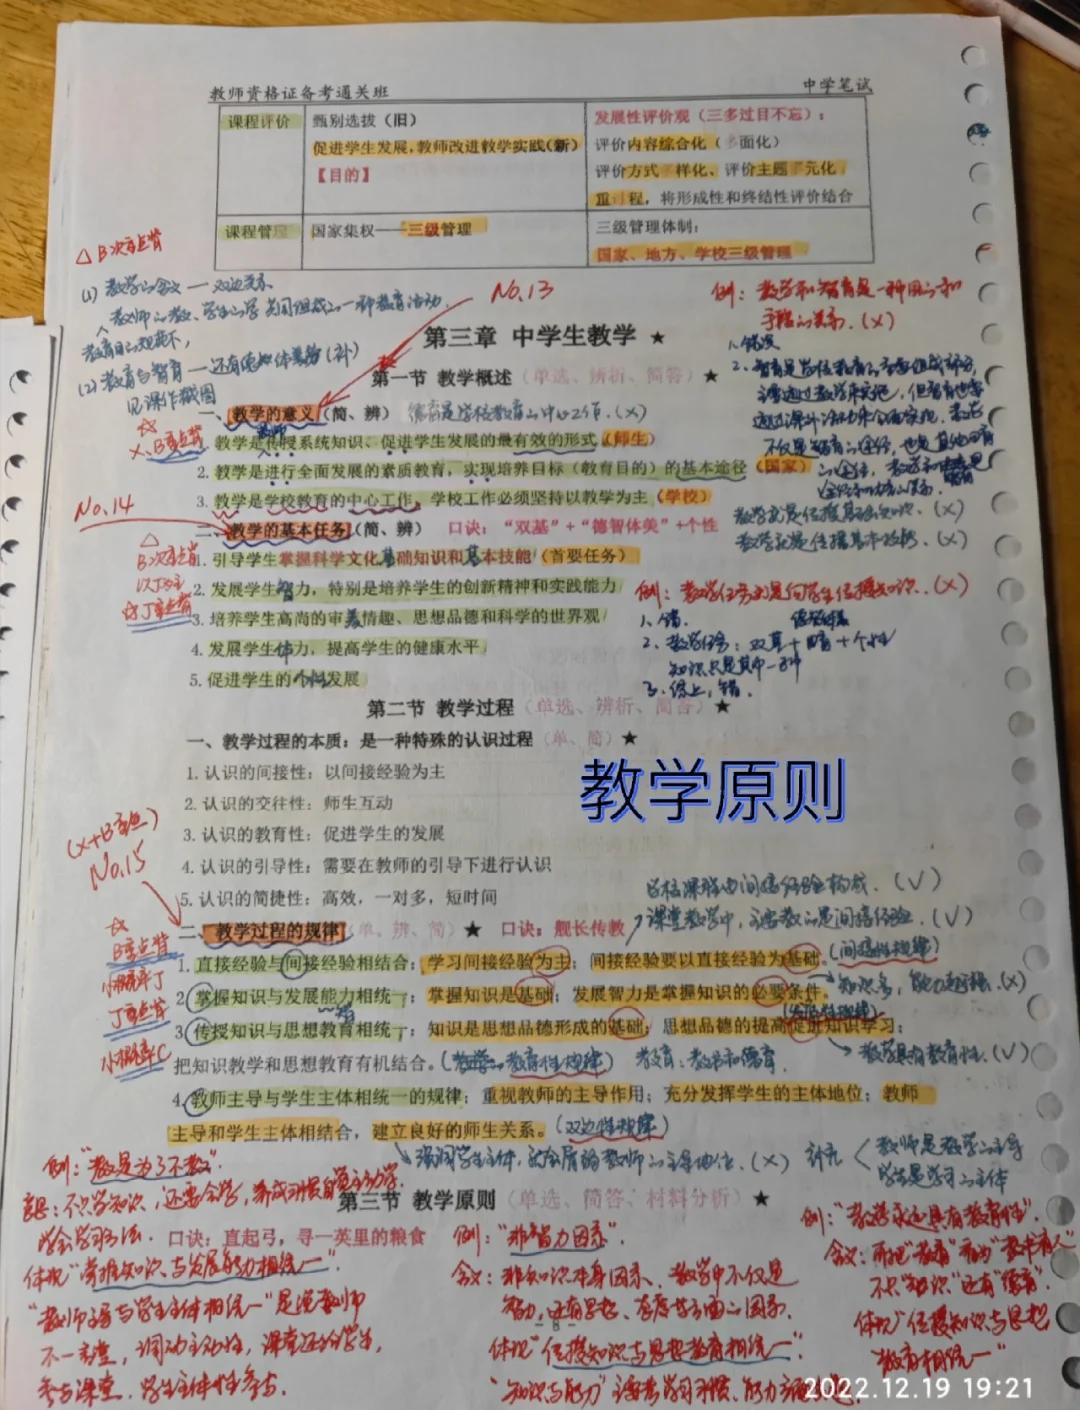 教师资格证备考通关班 中学笔试
课程评价 甄别选拔（旧）
促进学生发展，教师改进教学实践（新）
【目的】
发展性评价观（三多过目不忘）：
评价内容综合化（多面化）
评价方式多样化、评价主题多元化
重过程，将形成性和终结性评价结合
课程管理 国家集权——三级管理
三级管理体制：
国家、地方、学校三级管理
△B次重点背
(1) 教学的含义—双边关系
教师的教、学生的学共同组成的一种教育活动.
No.13
例：教学和智育是一种目的和
手段的关系.（×）
第三章 中学生教学 ★
第一节 教学概述（单选、辨析、简答）★
见课件截图
1.错误
一、教学的意义（简、辨） 德育是学校教育的中心工作.（×）
教学是传授系统知识、促进学生发展的最有效的形式（师生）
2. 教学是进行全面发展的素质教育，实现培养目标（教育目的）的基本途径（国家）
3. 教学是学校教育的中心工作，学校工作必须坚持以教学为主（学校）
No.14
二、教学的基本任务（简、辨） 口诀：“双基”+“德智体美”+个性
教学就是传授基础知识.（×）
教学就是传授基本技能.（×）
1. 引导学生掌握科学文化基础知识和基本技能（首要任务）
△
B次重点背
2. 发展学生智力，特别是培养学生的创新精神和实践能力
例：教学任务就是向学生传授知识.（×）
3. 培养学生高尚的审美情趣、思想品德和科学的世界观
1、错.
4. 发展学生体力，提高学生的健康水平
2、教学任务：双基＋四育＋个性
知识只是其中一种
5. 促进学生的个性发展
3、综上，错.
第二节 教学过程（单选、辨析、简答）★
一、教学过程的本质：是一种特殊的认识过程（单、简）★
1. 认识的间接性：以间接经验为主
教学原则
2. 认识的交往性：师生互动
3. 认识的教育性：促进学生的发展
4. 认识的引导性：需要在教师的引导下进行认识
5. 认识的简捷性：高效，一对多，短时间
(×+B重点)
No.15
学校课程由间接经验构成.（√）
课堂教学中，主要教的是间接经验.（√）
二、教学过程的规律（单、辨、简）★ 口诀：舰长传教
☆
B重点背
（间接性规律）
1. 直接经验与间接经验相结合；学习间接经验为主；间接经验要以直接经验为基础。
2. 掌握知识与发展能力相统一；掌握知识是基础；发展智力是掌握知识的必要条件。
知识多，能力越强.（×）
（发展性规律）
丁重点背
3. 传授知识与思想教育相统一；知识是思想品德形成的基础；思想品德的提高促进知识学习；
把知识教学和思想教育有机结合。（教学的教育性规律） 教育：教书和德育
教学具有教育性.（√）
4. 教师主导与学生主体相统一的规律；重视教师的主导作用；充分发挥学生的主体地位；教师
主导和学生主体相结合，建立良好的师生关系。（双边性规律）
强调学生主体，就会削弱教师的主导地位.（×）
补充
教师是教学的主导
学生是学习的主体
例：“教是为了不教”.
意思：不只学知识，还要会学，养成习惯自觉主动学.
学会学习方法.
第三节 教学原则（单选、简答、材料分析）★
口诀：直起弓，寻一英里的粮食
体现“掌握知识与发展能力相统一”
“教师主导与学生主体相统一”是说教师
不一言堂，调动主动性，课堂还给学生，
参与课堂，学生主体性参与.
例：“非智力因素”
含义：非知识本身因素，教学中不仅是
智力，还有思想、态度等方面的因素.
体现“传授知识与思想教育相统一”.
例：“教学永远具有教育性”.
不只“知识”还有“德育”.
体现“传授知识与思想
教育相统一”
8
2022.12.19 19:21